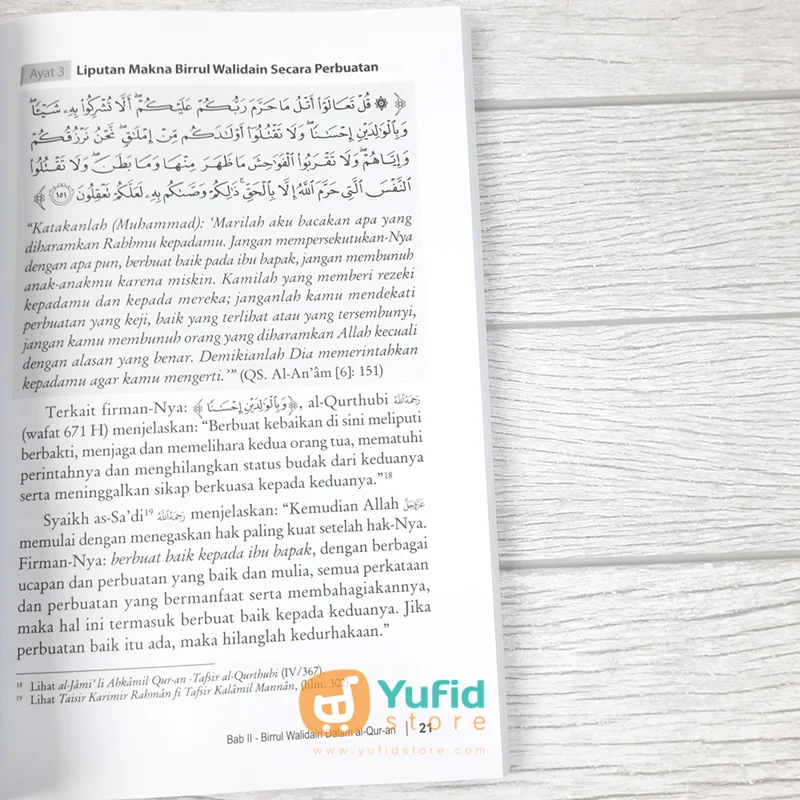 Ayat 3 Liputan Makna Birrul Walidain Secara Perbuatan
﴿ ۞ قُلْ تَعَالَوْا۟ أَتْلُ مَا حَرَّمَ رَبُّكُمْ عَلَيْكُمْ ۖ أَلَّا تُشْرِكُوا۟ بِهِۦ شَيْـًٔا ۖ
وَبِٱلْوَٰلِدَيْنِ إِحْسَـٰنًا ۖ وَلَا تَقْتُلُوٓا۟ أَوْلَـٰدَكُم مِّنْ إِمْلَـٰقٍ ۖ نَّحْنُ نَرْزُقُكُمْ
وَإِيَّاهُمْ ۖ وَلَا تَقْرَبُوا۟ ٱلْفَوَٰحِشَ مَا ظَهَرَ مِنْهَا وَمَا بَطَنَ ۖ وَلَا تَقْتُلُوا۟
ٱلنَّفْسَ ٱلَّتِى حَرَّمَ ٱللَّهُ إِلَّا بِٱلْحَقِّ ۚ ذَٰلِكُمْ وَصَّىٰكُم بِهِۦ لَعَلَّكُمْ تَعْقِلُونَ ١٥١ ﴾
“Katakanlah (Muhammad): ‘Marilah aku bacakan apa yang
diharamkan Rabbmu kepadamu. Jangan mempersekutukan-Nya
dengan apa pun, berbuat baik pada ibu bapak, jangan membunuh
anak-anakmu karena miskin. Kamilah yang memberi rezeki
kepadamu dan kepada mereka; janganlah kamu mendekati
perbuatan yang keji, baik yang terlihat atau yang tersembunyi,
jangan kamu membunuh orang yang diharamkan Allah kecuali
dengan alasan yang benar. Demikianlah Dia memerintahkan
kepadamu agar kamu mengerti.’” (QS. Al-An’âm [6]: 151)
Terkait firman-Nya: ﴿ وَبِٱلْوَٰلِدَيْنِ إِحْسَـٰنًا ﴾, al-Qurthubi رَحِمَهُ اللهُ
(wafat 671 H) menjelaskan: “Berbuat kebaikan di sini meliputi
berbakti, menjaga dan memelihara kedua orang tua, mematuhi
perintahnya dan menghilangkan status budak dari keduanya
serta meninggalkan sikap berkuasa kepada keduanya.”18
Syaikh as-Sa’di19 رَحِمَهُ اللهُ menjelaskan: “Kemudian Allah عَزَّوَجَلَّ
memulai dengan menegaskan hak paling kuat setelah hak-Nya.
Firman-Nya: berbuat baik kepada ibu bapak, dengan berbagai
ucapan dan perbuatan yang baik dan mulia, semua perkataan
dan perbuatan yang bermanfaat serta membahagiakannya,
maka hal ini termasuk berbuat baik kepada keduanya. Jika
perbuatan baik itu ada, maka hilanglah kedurhakaan.”
18 Lihat al-Jâmi’ li Ahkâmil Qur-an -Tafsir al-Qurthubi (IV/367).
19 Lihat Taisir Karimir Rahmân fi Tafsir Kalâmil Mannân, (hlm. 302)
Yufid
store
Bab II - Birrul Walidain Dalam al-Qur-an | 21
www.yufidstore.com